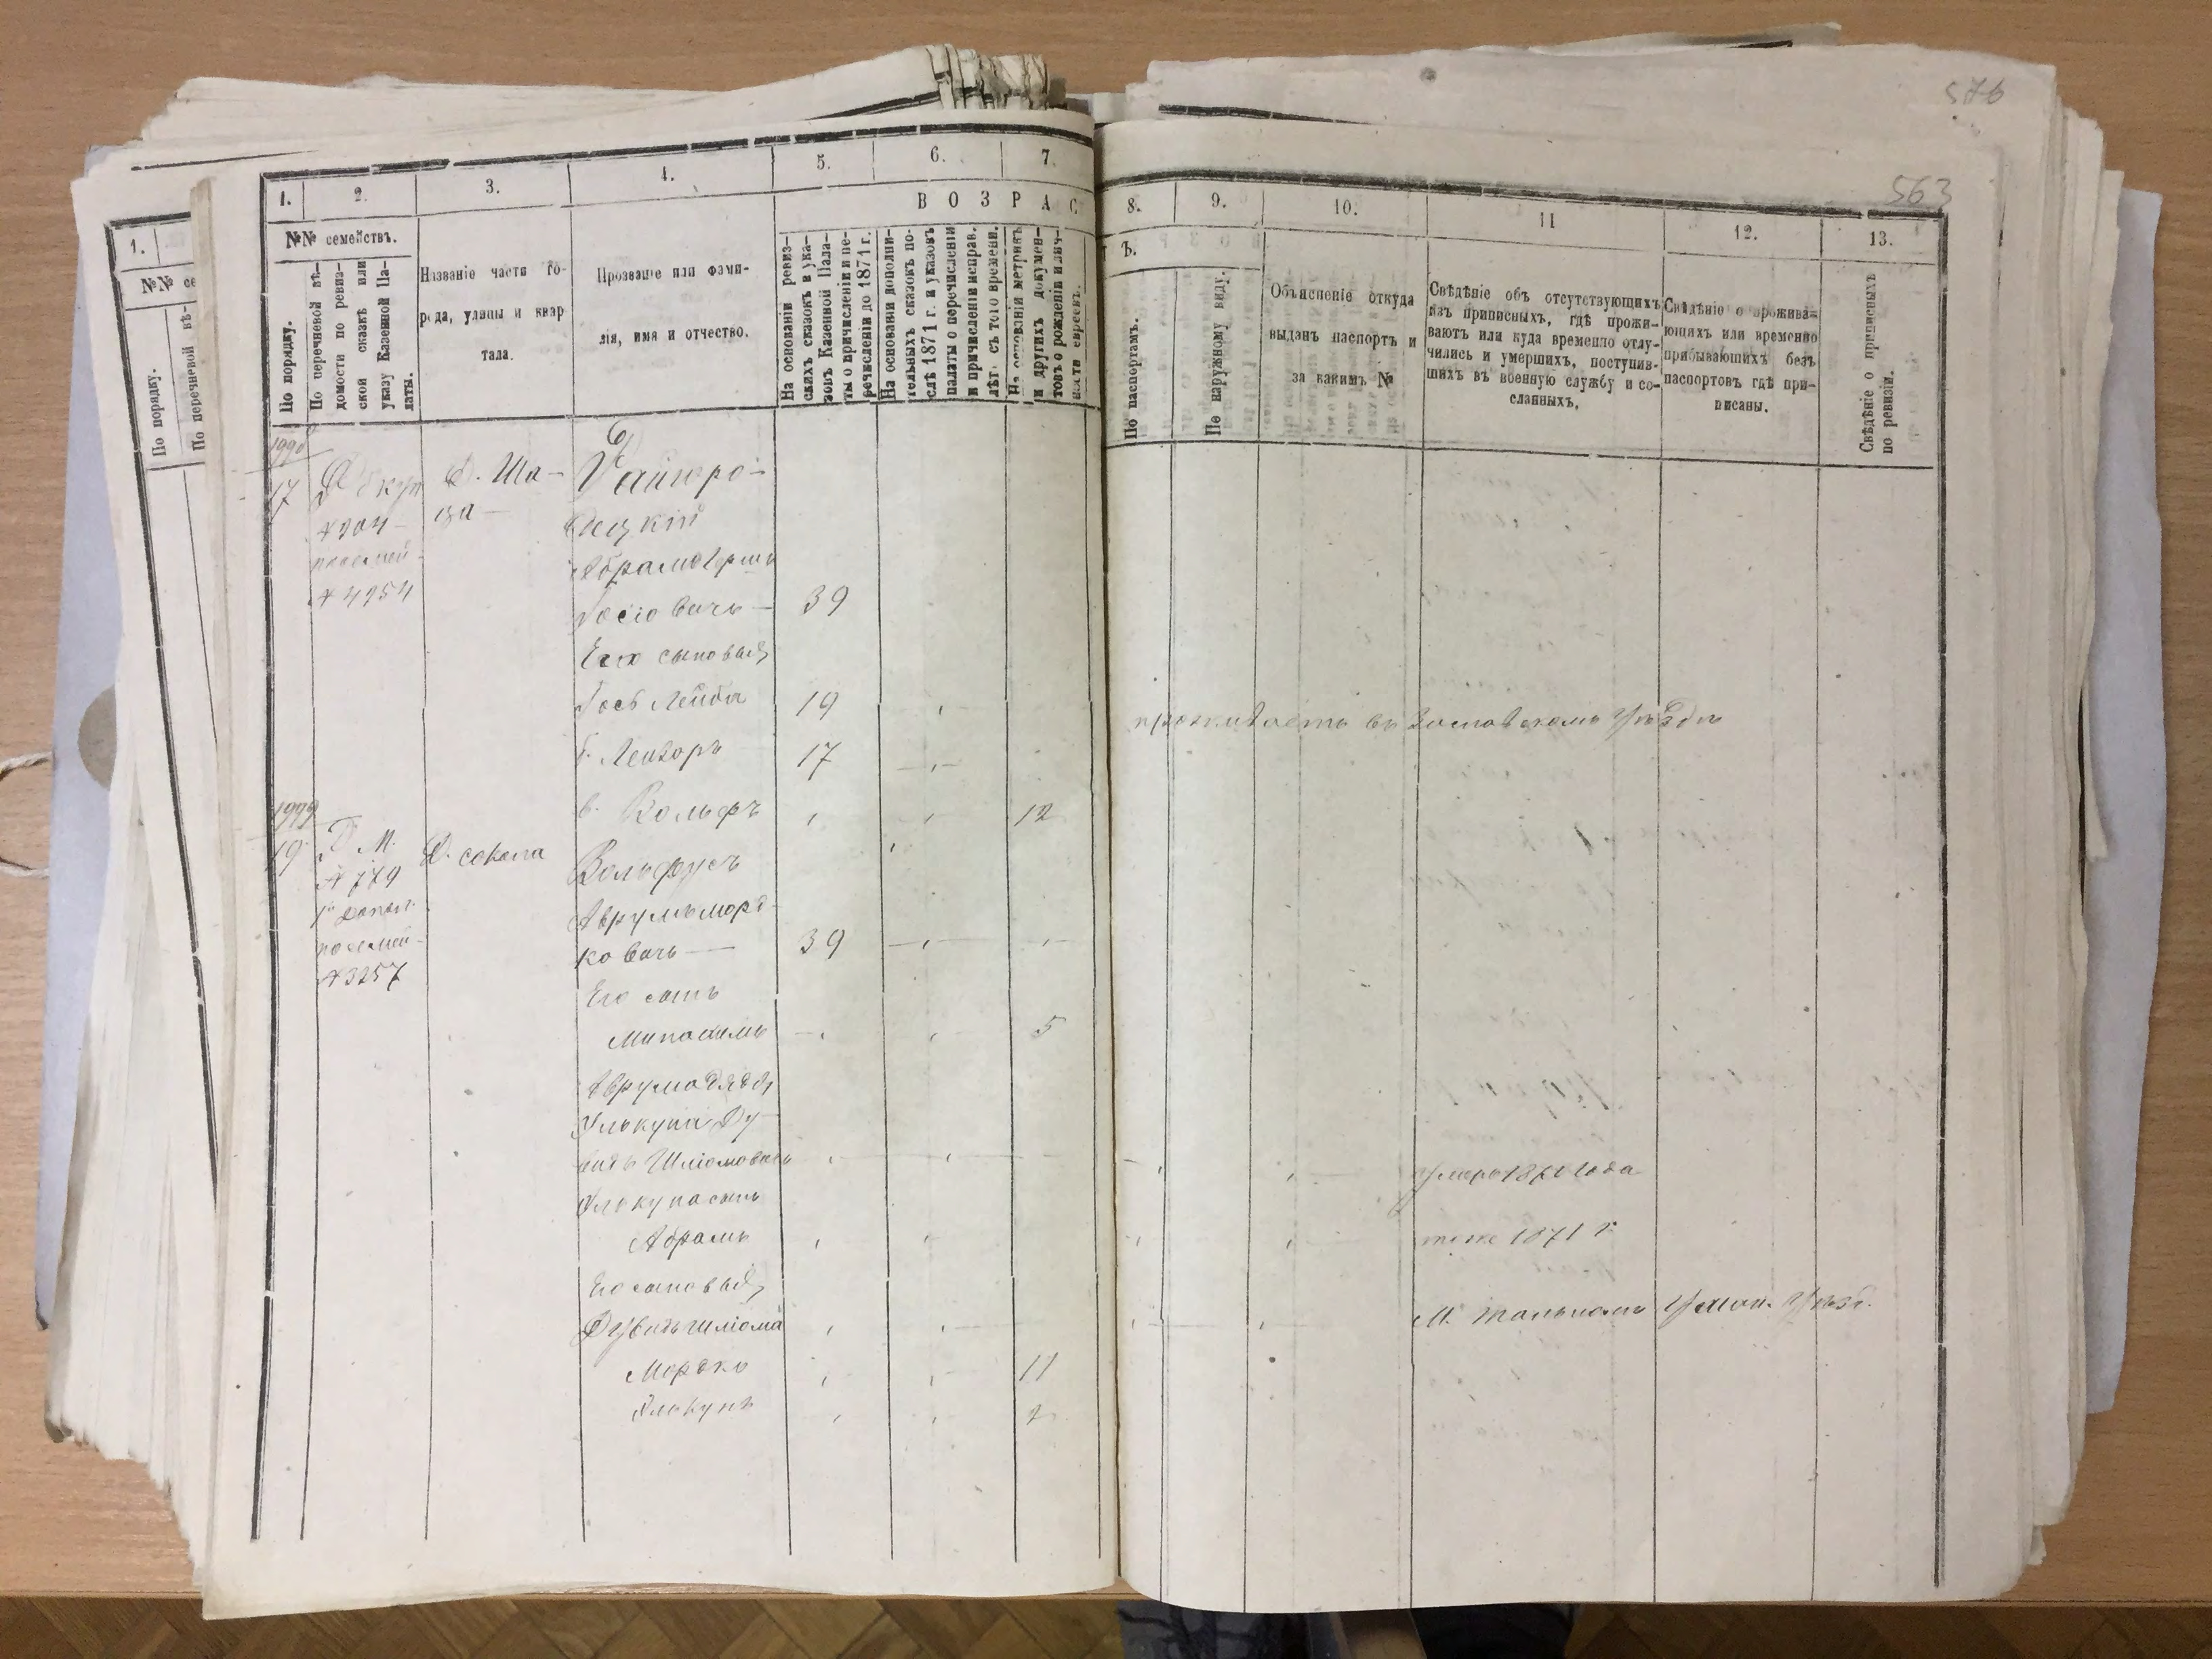 576
563
1.
№№ се
По порядку.
По перечневой вѣ-
1.
2.
3.
4.
5.
6.
7.
8.
9.
10.
11
12.
13.
В О З Р А С
Т Ъ.
№№ семействъ.
По порядку.
По перечневой вѣ-
домости по ревиз-
ской сказкѣ или
указу Казенной Па-
латы.
Названіе части го-
рода, улицы и квар
тала.
Прозваніе или фами-
лія, имя и отчество.
На основаніи ревиз-
скихъ сказокъ и ука-
зовъ Казенной Пала-
ты о причисленіи и пе-
речисленіи до 1871 г.
На основаніи дополни-
тельныхъ сказокъ по-
слѣ 1871 г. и указовъ
палаты о перечисленіи
и причисленіи исправ.
лѣт. съ того времени.
На основаніи метрикъ
и другихъ докумен-
товъ о рожденіи и лич-
ности евреевъ.
По паспортамъ.
По наружному виду.
Объясненіе откуда
выданъ паспортъ и
за какимъ №
Свѣдѣніе объ отсутствующихъ
изъ приписныхъ, гдѣ прожи-
ваютъ или куда временно отлу-
чились и умершихъ, поступив-
шихъ въ военную службу и со-
сланныхъ.
Свѣдѣніе о прожива-
ющихъ или временно
прибывающихъ безъ
паспортовъ гдѣ при-
писаны.
Свѣдѣніе о приписныхъ
по ревизіи.
17
№ 904
посемей-
№ 4254
Д. Ша-
ца
Райгро-
децкій
Абрамъ Гершъ
Іосіовичъ — 39
Его сыновья,
Іось Лейба 19
проживаетъ въ Заславскомъ Уѣздѣ
Лейзоръ 17
в. Вольфъ 12
19
Д. М.
№ 779
посемей-
№ 3257
Д. Сокола
Вольфусъ
Аврумъ Морд-
ковичъ — 39
Его сынъ
5
Аврума дядя,
Янкупъ Ду-
видъ Шліомовичъ
умеръ 1870 года
Янкупа сынъ
Абрамъ
тоже 1871 г.
Его сыновья,
Дувидъ Шліома
М. Тальномъ Уман. Уѣзд.
Мордко 11
Янкупъ 2